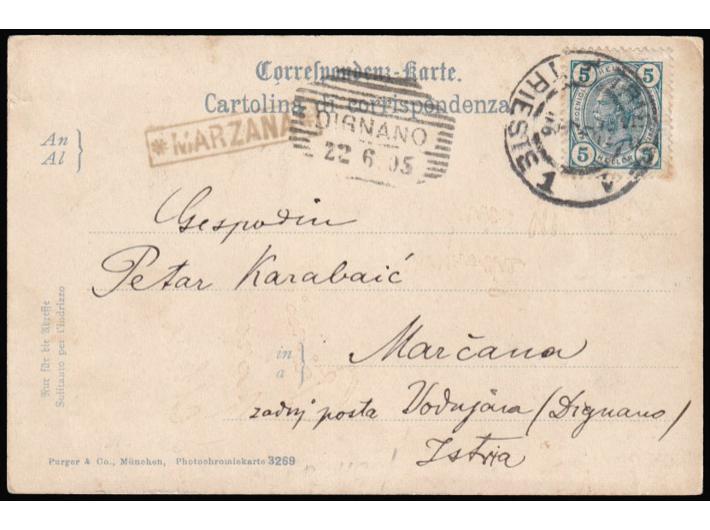 Correspondenz-Karte.
Cartolina di corrispondenza
*MARZANA*
DIGNANO
22 6 05
TRIESTE 1
5 5
5 5
An
Al
Gespodin
Petar Karabaić
in
a
Marčana
zadnj posta Vodnjana (Dignano)
Istria
Nur für die Adresse
Soltanto per l'indirizzo
Purger & Co., München, Photochromiekarte 3269